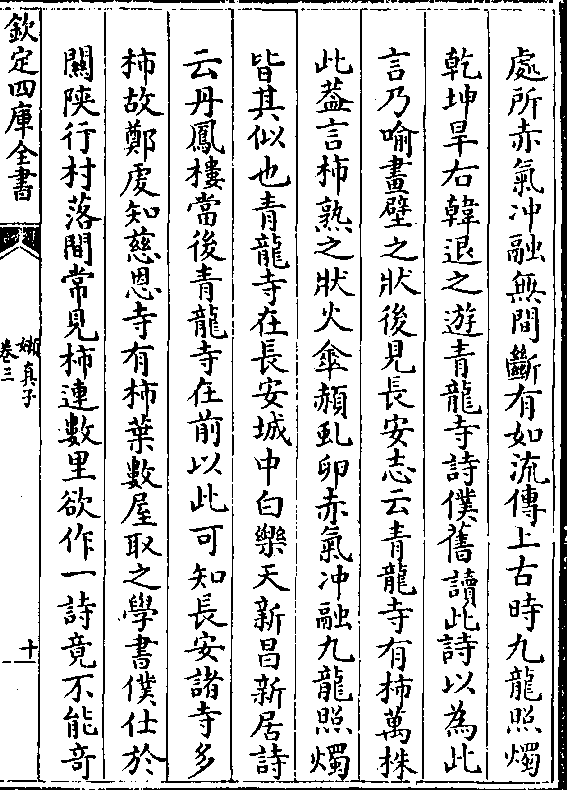 處所赤氣沖融無間斷有如流傳上古時九龍照燭
乾坤旱右韓退之遊青龍寺詩僕舊讀此詩以為此
言乃喻畫壁之狀後見長安志云青龍寺有柿萬株
此葢言柿熟之狀火傘赪虬卵赤氣沖融九龍照燭
皆其似也青龍寺在長安城中白樂天新昌新居詩
云丹鳳樓當後青龍寺在前以此可知長安諸寺多
柿故鄭䖍知慈恩寺有柿葉數屋取之學書僕仕於
關陜行村落間常見柿連數里欲作一詩竟不能竒
欽定四庫全書
嬾真子
卷三
十一